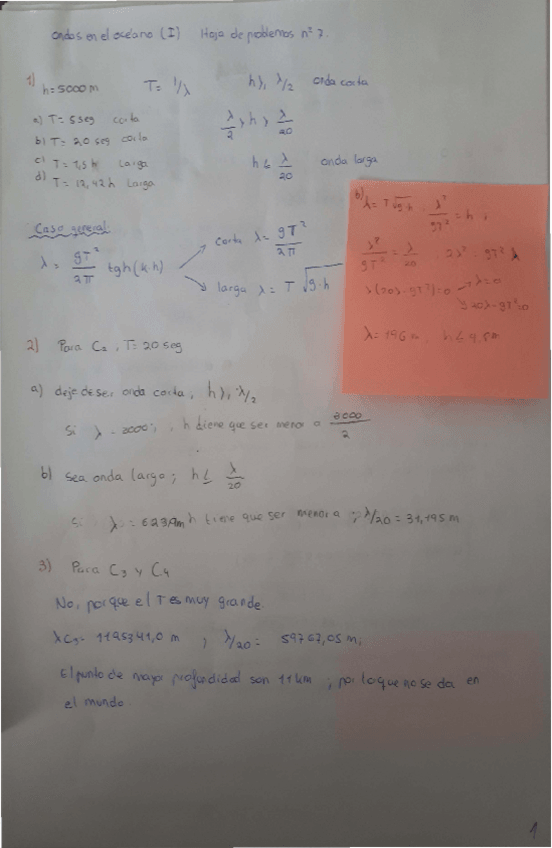 Ondas en el océano (I) Hoja de problemas nº 7.
1)
h = 5000 m T = 1/λ h ≥ λ/2 onda corta
a) T = 5 seg corta
λ/2 > h > λ/20
b) T = 20 seg corta
c) T = 1,5 h Larga
h ≤ λ/20 onda larga
d) T = 12,42 h Larga
Caso general
λ = gT²/2π tgh (k·h)
corta λ = gT²/2π
larga λ = T √g·h
b) λ = T√g·h λ²/gT² = h ;
λ²/gT² = λ/20 20λ² = gT² λ
λ(20λ - gT²) = 0 λ = 0
20λ - gT² = 0
λ = 196 m h ≤ 9,8 m
2) Para C2, T = 20 seg
a) deje de ser onda corta, h ≥ λ/2
Si λ = h tiene que ser menor a 2000/2
b) sea onda largo; h ≤ λ/20
Si λ = 623,9m h tiene que ser menor a ; λ/20 = 31,195 m
3) Para C3 y C4
No, porque el T es muy grande.
λC3 = 1195341,0 m ; λ/20 = 59767,05 m;
El punto de mayor profundidad son 11 km ; por lo que no se da en
el mundo
1